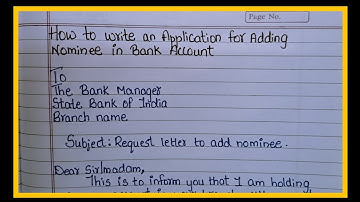 Page No.
How to write an Application for Adding
Nominee in Bank Account
To
The Bank Manager
State Bank of India
Branch name
Subject: Request letter to add nominee.
Dear Sir/madam,
This is to inform you that I am holding